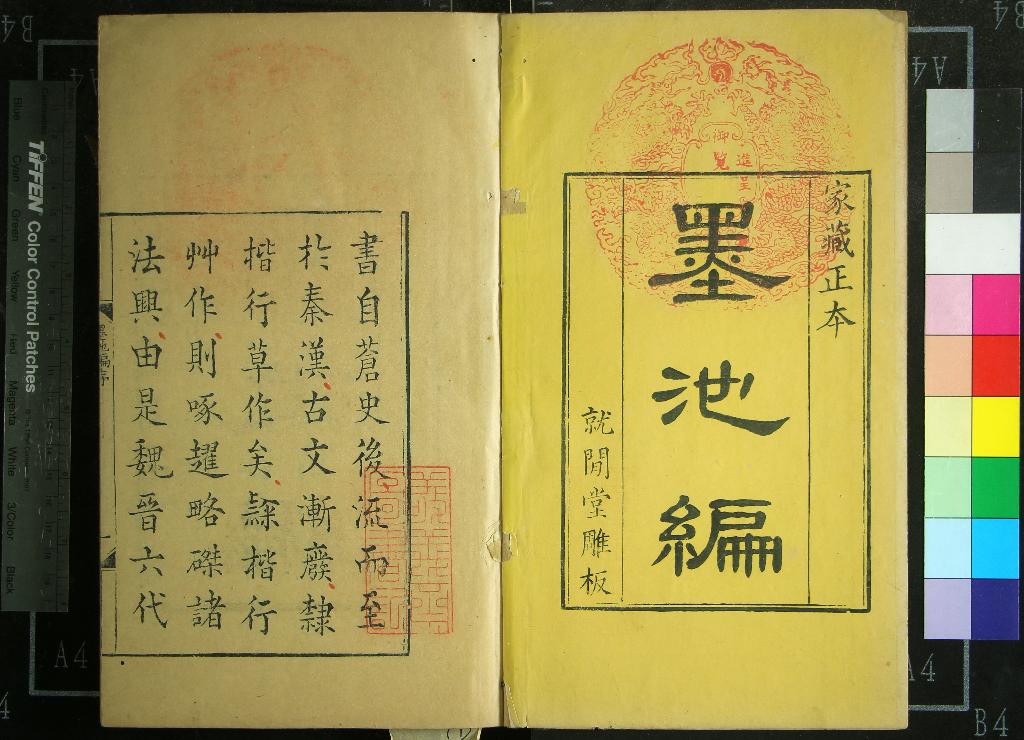 家藏正本
墨池編
就閒堂雕板
進呈
御覽
書自蒼史後流而至
於秦漢古文漸廢隸
楷行草作矣隸楷行
艸作則啄趯略磔諸
法興由是魏晉六代
墨池編序
TIFFEN Color Control Patches
Blue
Cyan
Green
Yellow
Red
Magenta
White
3/Color
Black
B4
A4
A4
B4
A4
A4
B4